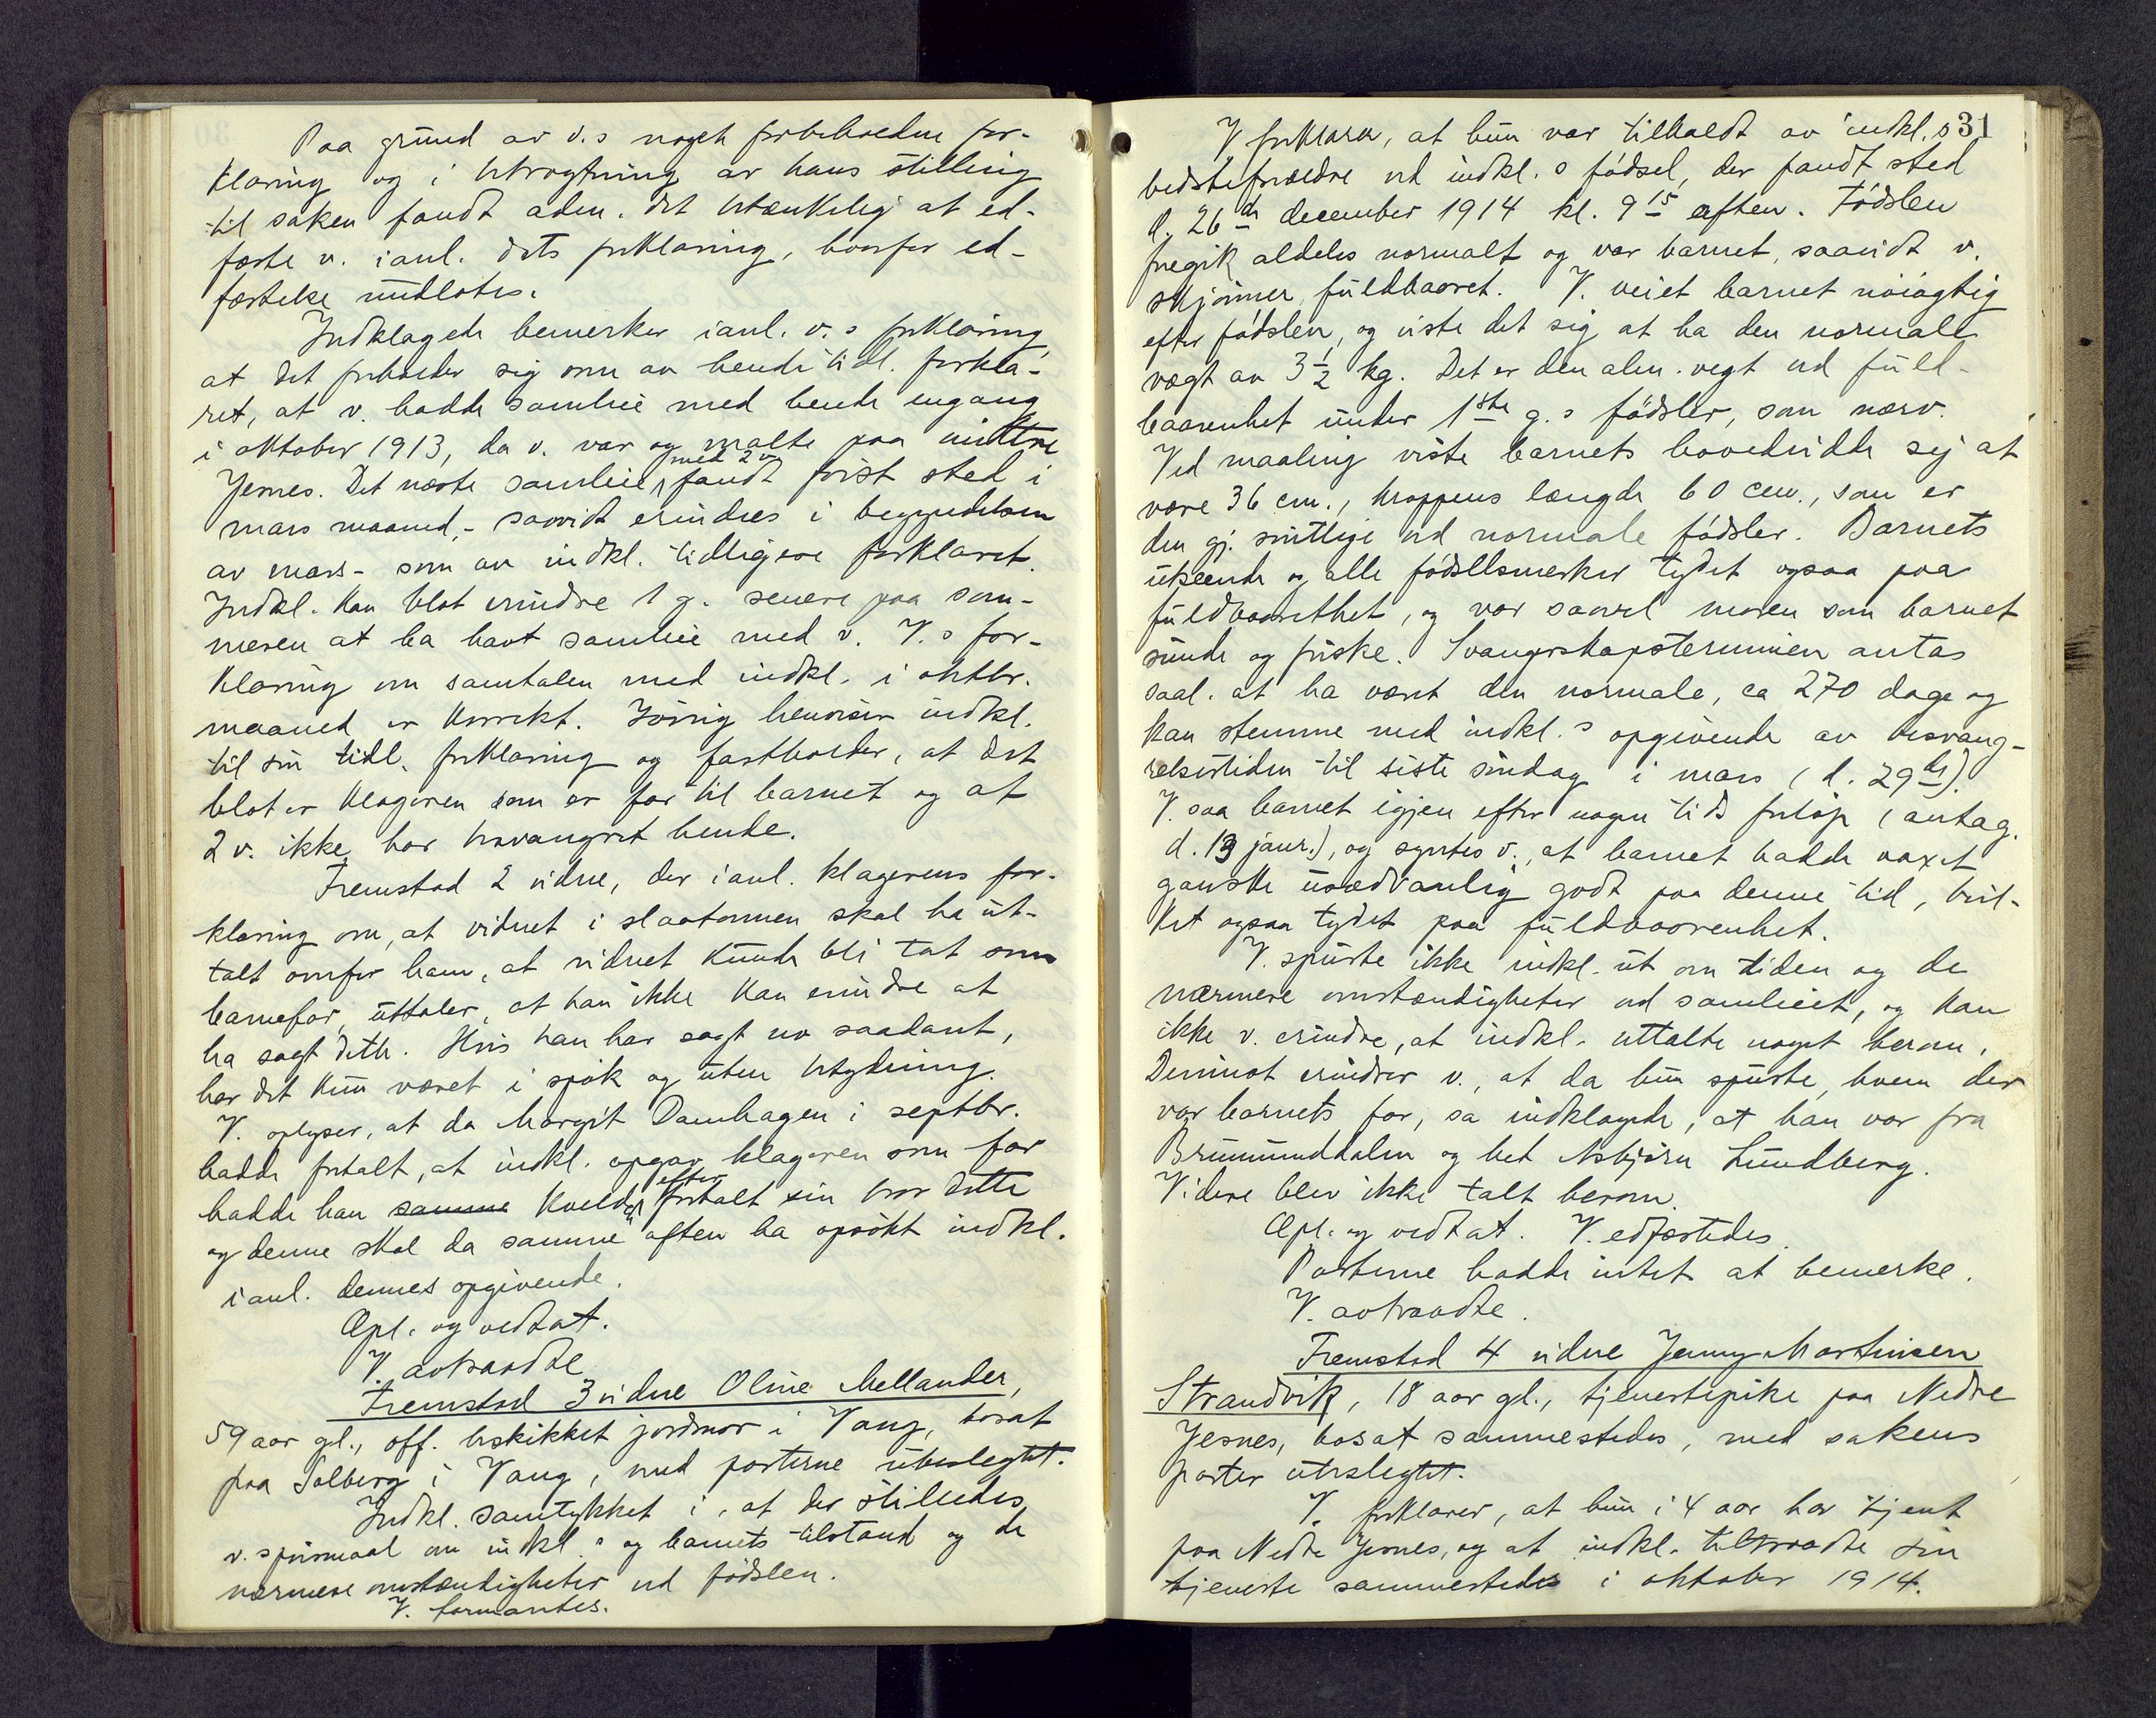 Paa grund av v.s noget forbeholdne for-
klaring og i betragtning av hans stilling
til saken fandt adm. det betænkelig at ed-
fæste v. i anl. dets forklaring, hvorfor ed-
fæstelse undlotes.
Indklagede bemerker i anl. v.s forklaring
at det forholder sig som av hende tidl. forkla-
ret, at v. hadde samleie med hende engang
i oktober 1913, da v. var og malte paa nedre
Jesnes. Det næste samleie med 2 v. fandt først sted i
mars maaned, - saavidt erindres i begyndelsen
av mars - som av indkl. tidligere forklaret.
Indkl. kan blot erindre 1 g. senere paa som-
meren at ha havt samleie med v. V.s for-
klaring om samtalen med indkl. i oktbr.
maaned er korrekt. Iøvrig henviser indkl.
til sin tidl. forklaring og fastholder, at det
blot er klageren som er far til barnet og at
2 v. ikke har besvangret hende.
Fremstod 2 vidne, der i anl. klagerens for-
klaring om, at vidnet i slaatonnen skal ha ut-
talt overfor ham, at vidnet kunde bli tat som
barnefar, uttaler, at han ikke kan erindre at
ha sagt dette. Hvis han har sagt no saadant,
har det kun været i spøk og uten betydning.
V. oplyser, at da Margit Damhagen i septbr.
hadde fortalt, at indkl. opgav klageren som far
hadde han samme kvelden efter fortalt sin bror dette
og denne skal da samme aften ha opsøkt indkl.
i anl. dennes opgivende.
Opl. og vedtat.
V. avtraadte.
Fremstod 3 vidne Oline Mellander,
59 aar gl., off. beskikket jordmor i Vang, bosat
paa Solberg i Vang, med parterne ubeslegtet.
Indkl. samtykket i, at der stilledes
v. spørsmaal om indkl.s og barnets tilstand og de
nærmere omstændigheter ved fødslen.
V. formantes.
31
V. forklarer, at hun var tilkaldt av indkl.s
bedsteforældre ved indkl.s fødsel, der fandt sted
d. 26de december 1914 kl. 9 15 aften. Fødslen
foregik aldeles normalt og var barnet, saavidt v.
skjønner, fuldbaaret. V. veiet barnet nøiagtig
efter fødslen, og viste det sig at ha den normale
vægt av 3 1/2 kg. Det er den alm. vegt ved fuld-
baarenhet under 1ste g.s fødsler, som nærv.
Ved maaling viste barnets hovedvidde sej at
være 36 cm., kroppens længde 60 cm., som er
den gj. snittlige ved normale fødsler. Barnets
utseende og alle fødsllsmerker tydet ogsaa paa
fuldbaarethet, og var saavel moren som barnet
sunde og friske. Svangerskapsterminen antas
saal. at ha været den normale, ca 270 dage og
kan stemme med indkl.s opgivende av besvang-
relsestiden til siste søndag i mars (d. 29de).
V. saa barnet igjen efter nogen tids forløp (antag.
d. 13 janr.), og syntes v., at barnet hadde vaxet
ganske usædvanlig godt paa denne tid, hvil-
ket ogsaa tydet paa fuldbaarenhet.
V. spurte ikke indkl. ut om tiden og de
nærmere omstændigheter ved samleiet, og kan
ikke v. erindre, at indkl. uttalte noget herom.
Derimot erindrer v., at da hun spurte, hvem der
var barnets far, sa indklagede, at han var fra
Brummunddalen og het Asbjørn Lundberg.
Videre blev ikke talt herom.
Opl. og vedtat. V. edfæstedes.
Parterne hadde intet at bemerke.
V. avtraadte.
Fremstod 4 vidne Jenny Martinsen
Strandvik, 18 aar gl., tjenestepike paa Nedre
Jesnes, bosat sammestedes, med sakens
parter ubeslegtet.
V. forklarer, at hun i 4 aar har tjent
paa Nedre Jesnes, og at indkl. tiltraadte sin
tjeneste sammestedes i oktober 1914.